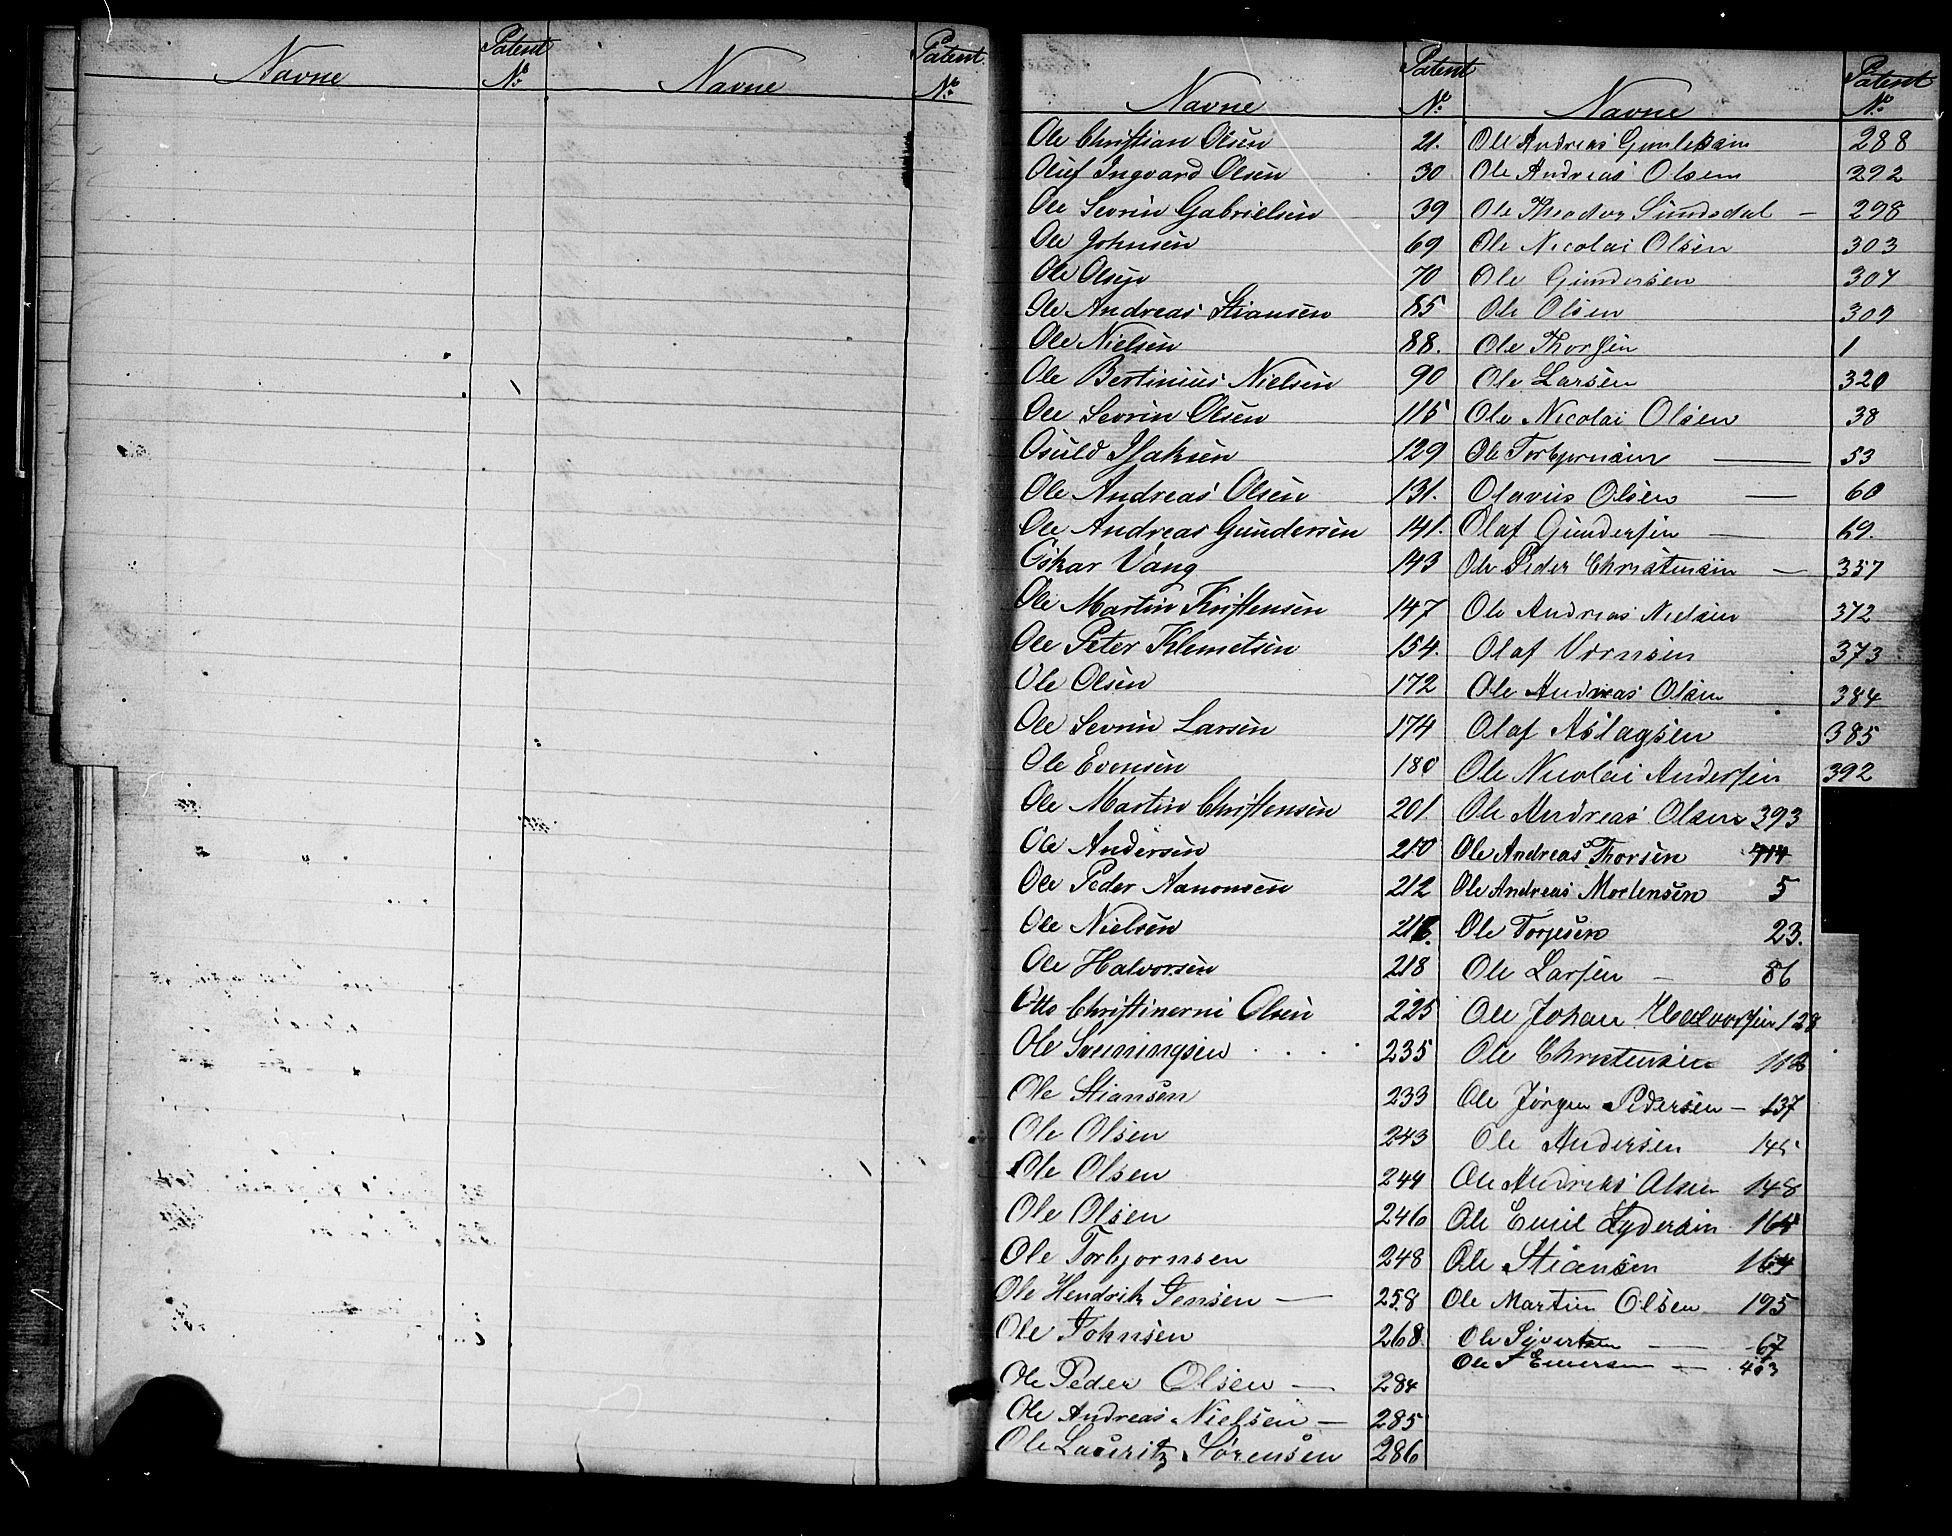 Navne Patent No. Navne Patent No.
Navne Patent No. Navne Patent No.
Ole Christian Olsen 21.
Oluf Ingvard Olsen 30
Ole Sevrin Gabrielsen 39
Ole Johnsen 69
Ole Olsen 70
Ole Andreas Stiansen 85
Ole Nielsen 88.
Ole Bertinius Nielsen 90
Ole Sevrin Olsen 115
Osuld Isaksen 129
Ole Andreas Olsen 131.
Ole Andreas Gundersen 141.
Oskar Vang 143
Ole Martin Kristensen 147
Ole Peter Klemetsen 154.
Ole Olsen 172
Ole Sevrin Larsen 174
Ole Evensen 180
Ole Martin Christensen 201.
Ole Andersen 210
Ole Peder Aanonsen 212
Ole Nielsen 216.
Ole Halvorsen 218
Otto Olsen 225
Ole Svenningsen . . . . 235
Ole Stiansen 233
Ole Olsen 243
Ole Olsen 244
Ole Olsen 246
Ole Torbjornsen 248
Ole Hendrik Jensen — 258
Ole Johnsen 268.
Ole Peder Olsen — 284
Ole Andreas Nielsen — 285
Ole Lauritz Sørensen 286
Ole Andreas Gunleksen 288
Ole Andreas Olsen 292
Ole Theodor Sundsdal — 298
Ole Nicolai Olsen 303
Ole Gundersen 307
Ole Olsen 309
Ole Thorsen 1
Ole Larsen 320
Ole Nicolai Olsen 38
Ole Torbjornsen — 53
Olavus Olsen — 60
Olaf Gundersen — 69.
Ole Peder Christensen — 357
Ole Andreas Nielsen 372
Olaf 373
Ole Andreas Olsen 384
Olaf Aslagsen 385
Ole Nicolai Andersen 392
Ole Andreas Olsen 393
Ole Andreas Thorsen 414
Ole Andreas Mortensen 5
Ole Torjusen 23.
Ole Larsen — 86
Ole Johan Halvorsen 128
Ole Christensen
Ole Jørgen Pedersen — 137
Ole Andersen 145
Ole Andreas Olsen 148
Ole Emil Lydersen
Ole Stiansen 164
Ole Martin Olsen 195
Ole Sivertsen — 67
Ole — 403